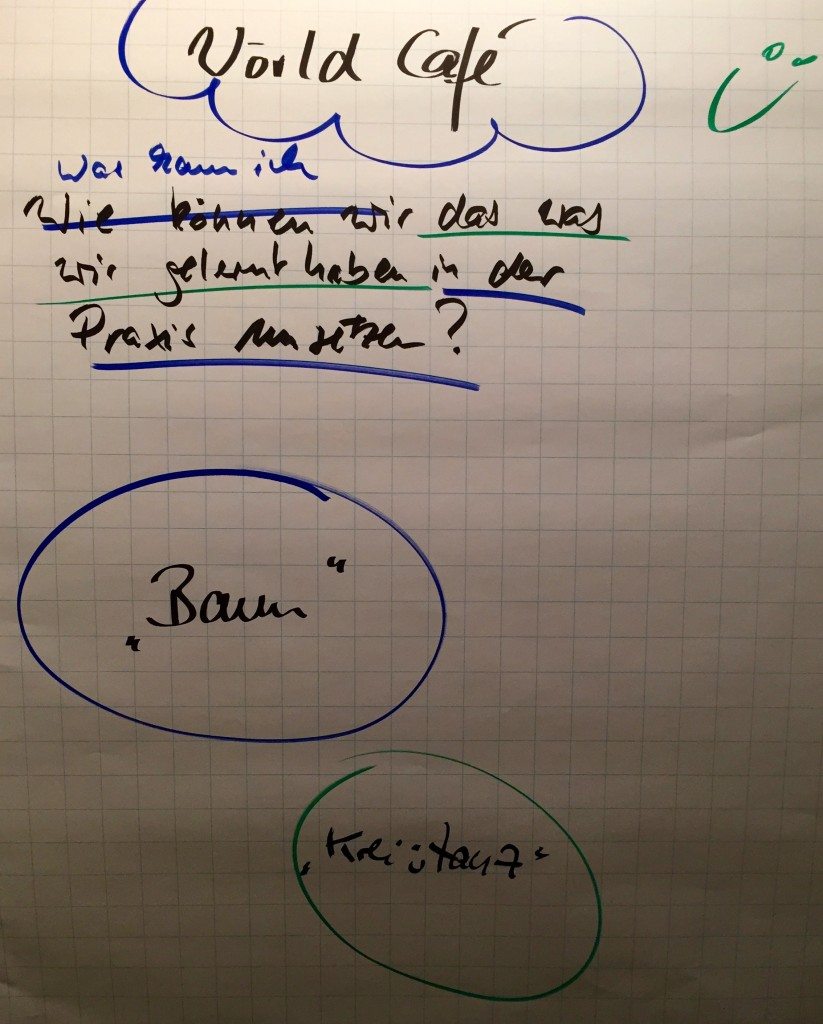 World Café
was kann ich
Wie können wir das was
wir gelernt haben in der
Praxis umsetzen?
„Baum“
„Kreistanz“